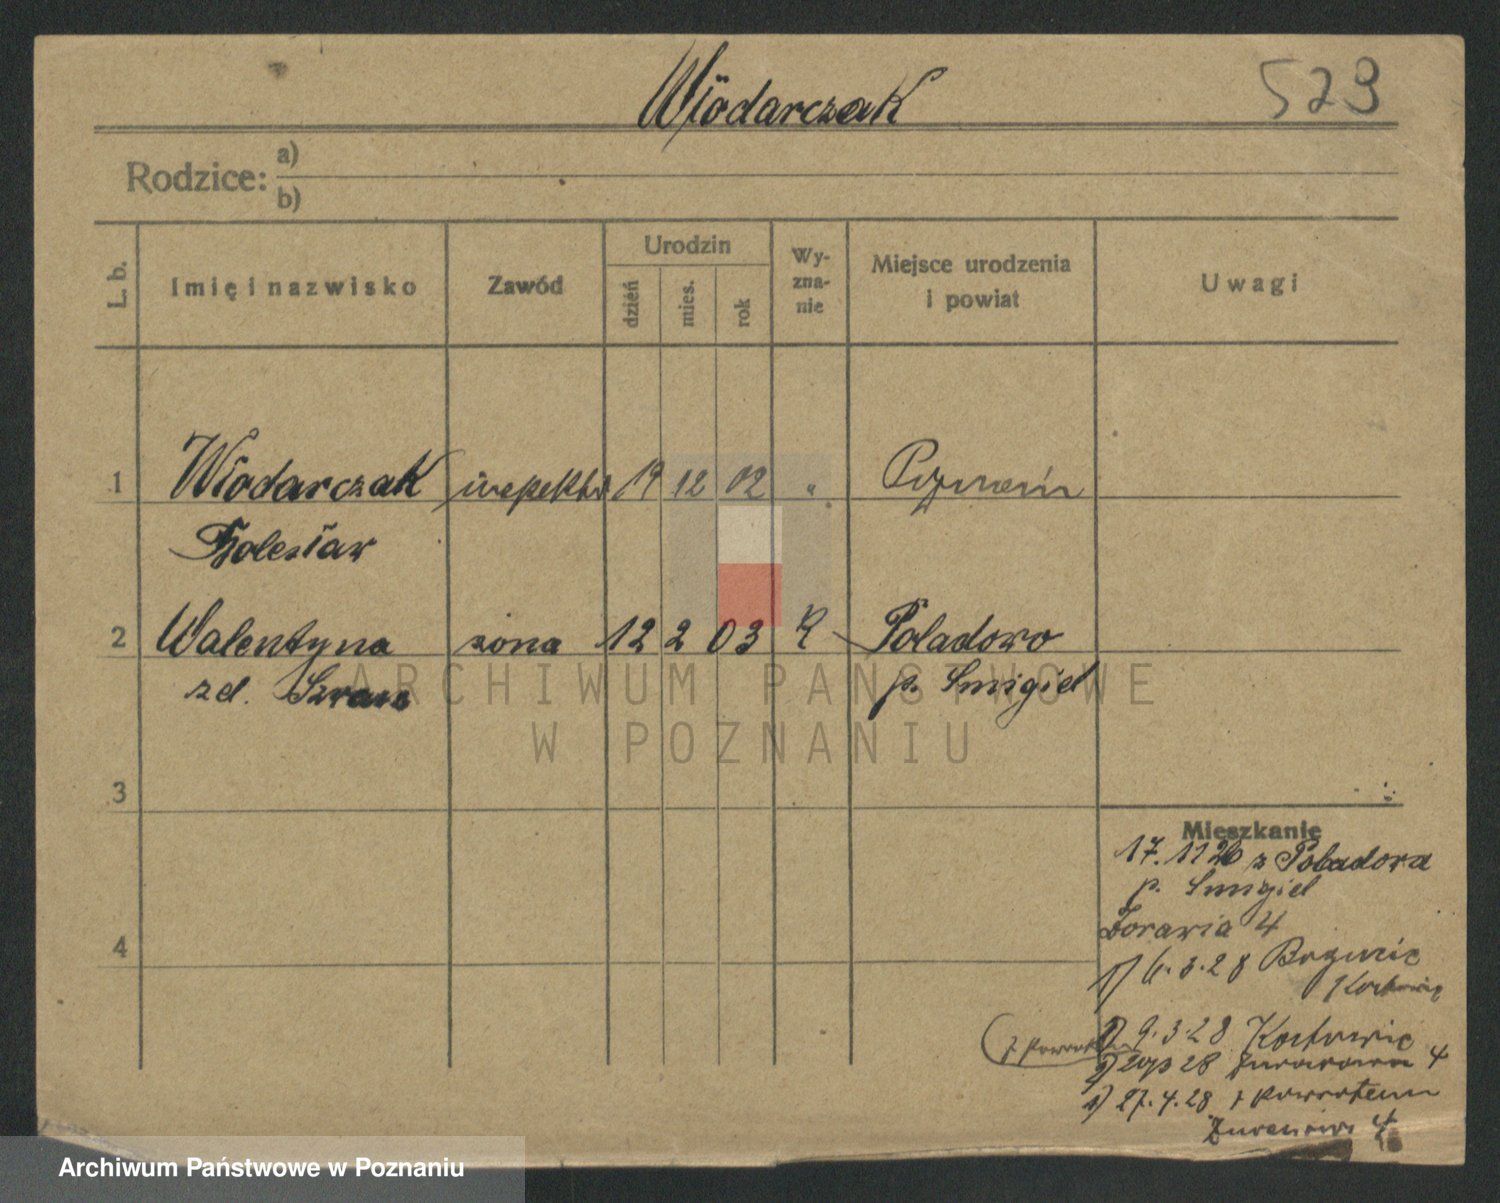 Włodarczak
523
Rodzice: a)
b)
L. b.
Imię i nazwisko
Zawód
Urodzin
dzień
mies.
rok
Wy-
zna-
nie
Miejsce urodzenia
i powiat
Uwagi
1 Włodarczak 19 12 02 "
Bolesław
2 Walentyna żona 12 2 03 R Poladowo
zd. p. Śmigiel
3
4
Mieszkanie
17.11 26 z Poladowa
p. Śmigiel
Żorawia 4
1) 6.3.28
1) 9.3.28
28 4
1) 27.4.28 z powrotem
4
ARCHIWUM PAŃSTWOWE
W POZNANIU
Archiwum Państwowe w Poznaniu